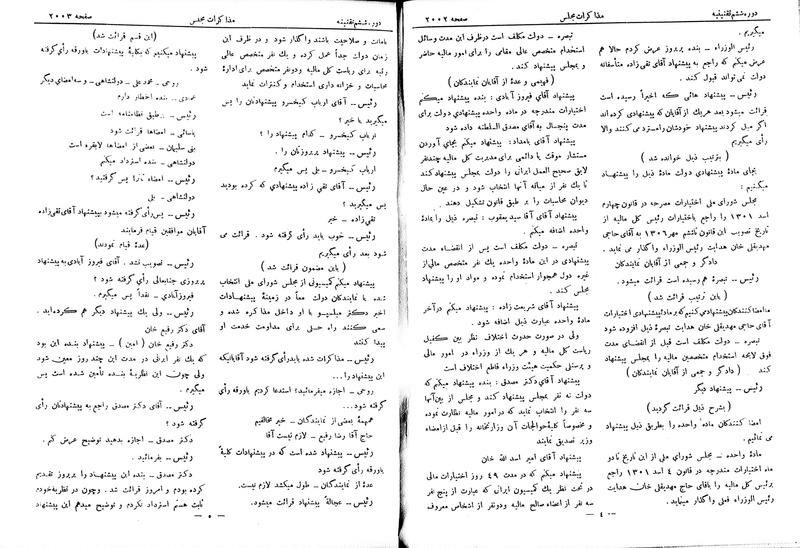 دوره ششم تقنینیه
مذاکرات مجلس
صفحه ۲۰۰۲
میگیریم .
رئیس الوزراء ــ بنده پریروز عرض کردم حالا هم
عرض میکنم که راجع به پیشنهاد آقای تقی زاده متأسفانه
دولت نمی تواند قبول کند .
رئیس ــ پیشنهاد هائی که اخیراً رسیده است
قرائت میشود بعد هریک از آقایان که پیشنهادی کرده اند
اگر میل کردند پیشنهاد خودشان را مسترد می کنند والا
رأی میگیریم
( بترتیب ذیل خوانده شد )
بجای مادهٔ پیشنهادی دولت مادهٔ ذیل را پیشنهاد
میکنیم :
مجلس شورای ملی اختیارات مصرحه در قانون چهارم
اسد ۱۳۰۱ را راجع باختیارات رئیس کل مالیه از
تاریخ تصویب این قانون تا نهم مهر ۱۳۰۶ به آقای حاجی
مهدیقلی خان هدایت رئیس الوزراء واگذار می نماید .
دادگر و جمعی از آقایان نمایندگان
رئیس ــ تبصرهٔ هم رسیده است قرائت میشود .
( باین ترتیب قرائت شد )
ما امضاکنندگان پیشنهاد می کنیم که بر مادهٔ پیشنهادی اختیارات
آقای حاجی مهدیقلی خان هدایت تبصرهٔ ذیل افزوده شود
تبصره ــ دولت مکلف است قبل از انقضاء مدت
فوق لایحه استخدام متخصصین مالیه را بمجلس پیشنهاد
کند . ( دادگر و جمعی از آقایان نمایندگان )
رئیس ــ پیشنهاد دیگر
( بشرح ذیل قرائت گردید )
امضا کنندگان ماده واحده را بطریق ذیل پیشنهاد
می نمائیم .
ماده واحده ــ مجلس شورای ملی از این تاریخ تا دو
ماه اختیارات مندرجه در قانون ٤ اسد ۱۳۰۱ راجع
برئیس کل مالیه را بآقای حاج مهدیقلی خان هدایت
رئیس الوزراء فعلی واگذار مینماید .
تبصره ــ دولت مکلف است در ظرف این مدت وسائل
استخدام متخصص عالی مقامی را برای امور مالیه حاضر
و بمجلس پیشنهاد کند .
( فهیمی و عدهٔ از آقایان نمایندگان )
پیشنهاد آقای فیروز آبادی : بنده پیشنهاد میکنم
اختیارات مندرجه در ماده واحده پیشنهادی دولت برای
مدت پنجسال به آقای مصدق السلطنه داده شود
پیشنهاد آقای بامداد : پیشنهاد میکنم بجای آوردن
مستشار موقت یا دائمی برای مدیریت کل مالیه چند نفر
لایق صحیح العمل ایرانی را دولت بمجلس پیشنهاد کند
تا یک نفر از میانه آنها انتخاب شود و در عین حال
دیوان محاسبات را بر طبق قانون تشکیل دهند .
پیشنهاد آقای آقا سید یعقوب : تبصره ذیل را بمادهٔ
واحده اضافه میکنم .
تبصره ــ دولت مکلف است پس از انقضاء مدت
پیشنهادی در این مادهٔ واحده یک نفر متخصص مالی از
غیره دول همجوار استخدام نموده و مواد او را پیشنهاد
مجلس کنند .
پیشنهاد آقای شریعت زاده : پیشنهاد میکنم در آخر
مادهٔ واحده عبارت ذیل اضافه شود .
ولی در صورت حدوث اختلاف نظر بین کفیل
ریاست کل مالیه و هر یک از وزراء در امور مالی
و پرسنلی حکمیت هیئت وزراء قاطع اختلاف است
پیشنهاد آقای دکتر مصدق : بنده پیشنهاد میکنم که
دولت نه نفر بمجلس پیشنهاد کند و مجلس از بین آنها
سه نفر را انتخاب نماید که در امور مالیه نظارت نموده
و مخصوصاً کلیهٔ حوالجات آن وزارتخانه را قبل از امضاء
وزیر تصدیق نمایند
پیشنهاد آقای امیر اسد الله خان
پیشنهاد میکنم که در مدت ٤۹ روز اختیارات مالی
در تحت نظر یک کمیسیون ایرانی که عبارت از پنج نفر
سه نفر از اعضاء صالح مالیه و دو نفر از اشخاص معروف
ــ ٤ ــ
دوره ششم تقنینیه
مذاکرات مجلس
صفحه ۲۰۰۳
بامانت و صلاحیت باشند واگذار شود و در ظرف این
زمان دولت جداً عمل کرده و یک نفر متخصص عالی
رتبه برای ریاست کل مالیه و دو نفر متخصص برای ادارهٔ
محاسبات و خزانه داری استخدام و کنترات نماید
رئیس ــ آقای ارباب کیخسرو پیشنهادتان را پس
میگیرید یا خیر ؟
ارباب کیخسرو ــ کدام پیشنهاد را ؟
رئیس ــ پیشنهاد پریروزتان را .
ارباب کیخسرو ــ بلی پس میگیرم
رئیس ــ آقای تقی زاده پیشنهادی که کرده بودید
پس میگیرید ؟
تقی زاده ــ خیر
رئیس ــ خوب باید رأی گرفته شود . قرائت می
شود بعد رأی میگیریم
( باین مضمون قرائت شد )
پیشنهاد میکنم کمیسیونی از مجلس شورای ملی انتخاب
شده با نمایندگان دولت معاً در زمینهٔ پیشنهادات
اخیر دکتر میلسپو با او داخل مذاکره شده و
سعی کنند راه حلی برای مداومت خدمت او
پیدا کنند
رئیس ــ مذاکرات شده باید رأی گرفته شود آقایانیکه
این پیشنهاد را ...
روحی ــ اجازه میفرمائید ؟ استدعا کردیم باورقه رأی
گرفته شود ...
همهمهٔ بعضی از نمایندگان ــ خیر مخالفیم
حاج آقا رضا رفیع ــ لازم نیست آقا
رئیس ــ پیشنهاد شده است که در پیشنهادات کلیهٔ
باورقه رأی گرفته شود
عدهٔ از نمایندگان ــ طول میکشد لازم نیست .
رئیس ــ عجالةً پیشنهاد قرائت میشود .
( این قسم قرائت شد )
پیشنهاد میکنیم که بکلیهٔ پیشنهادات باورقه رأی گرفته
شود .
روحی ــ محمد علی ــ دولتشاهی ــ و سه امضای دیگر
ــ بنده اخطار دارم
رئیس ــ طبق نظامنامه است
یاسائی ــ امضاها قرائت شود
بنی سلیمان ــ بعضی از امضاها لایقره است
دولتشاهی ــ بنده استرداد میکنم
رئیس ــ امضاء تانرا پس گرفتید ؟
دولتشاهی ــ بلی
رئیس ــ پس رأی گرفته میشود به پیشنهاد آقای تقی زاده
آقایان موافقین قیام فرمایند
( عدهٔ قیام نمودند )
رئیس ــ تصویب نشد . آقای فیروز آبادی به پیشنهاد
پریروزی جنابعالی رأی گرفته شود ؟
فیروز آبادی ــ نقداً پس میگیرم .
رئیس ــ ولی یک پیشنهاد دیگر هم کرده اید .
آقای دکتر رفیع خان
دکتر رفیع خان ( امین ) ــ پیشنهاد بنده این بود
که یک نفر ایرانی در مدت این چند روز معین شود
ولی چون این نظریهٔ بنده تأمین شده است پس
میگیرم .
رئیس ــ آقای دکتر مصدق راجع به پیشنهادتان رأی
گرفته شود ؟
دکتر مصدق ــ اجازه بدهید توضیح عرض کنم .
رئیس ــ بفرمائید .
دکتر مصدق ــ بنده این پیشنهاد را پریروز تقدیم
کرده بودم و امروز قرائت شد . و چون در نظریهٔ خودم
ثابت هستم استرداد نکردم و توضیح میدهم این پیشنهاد
ــ ٥ ــ